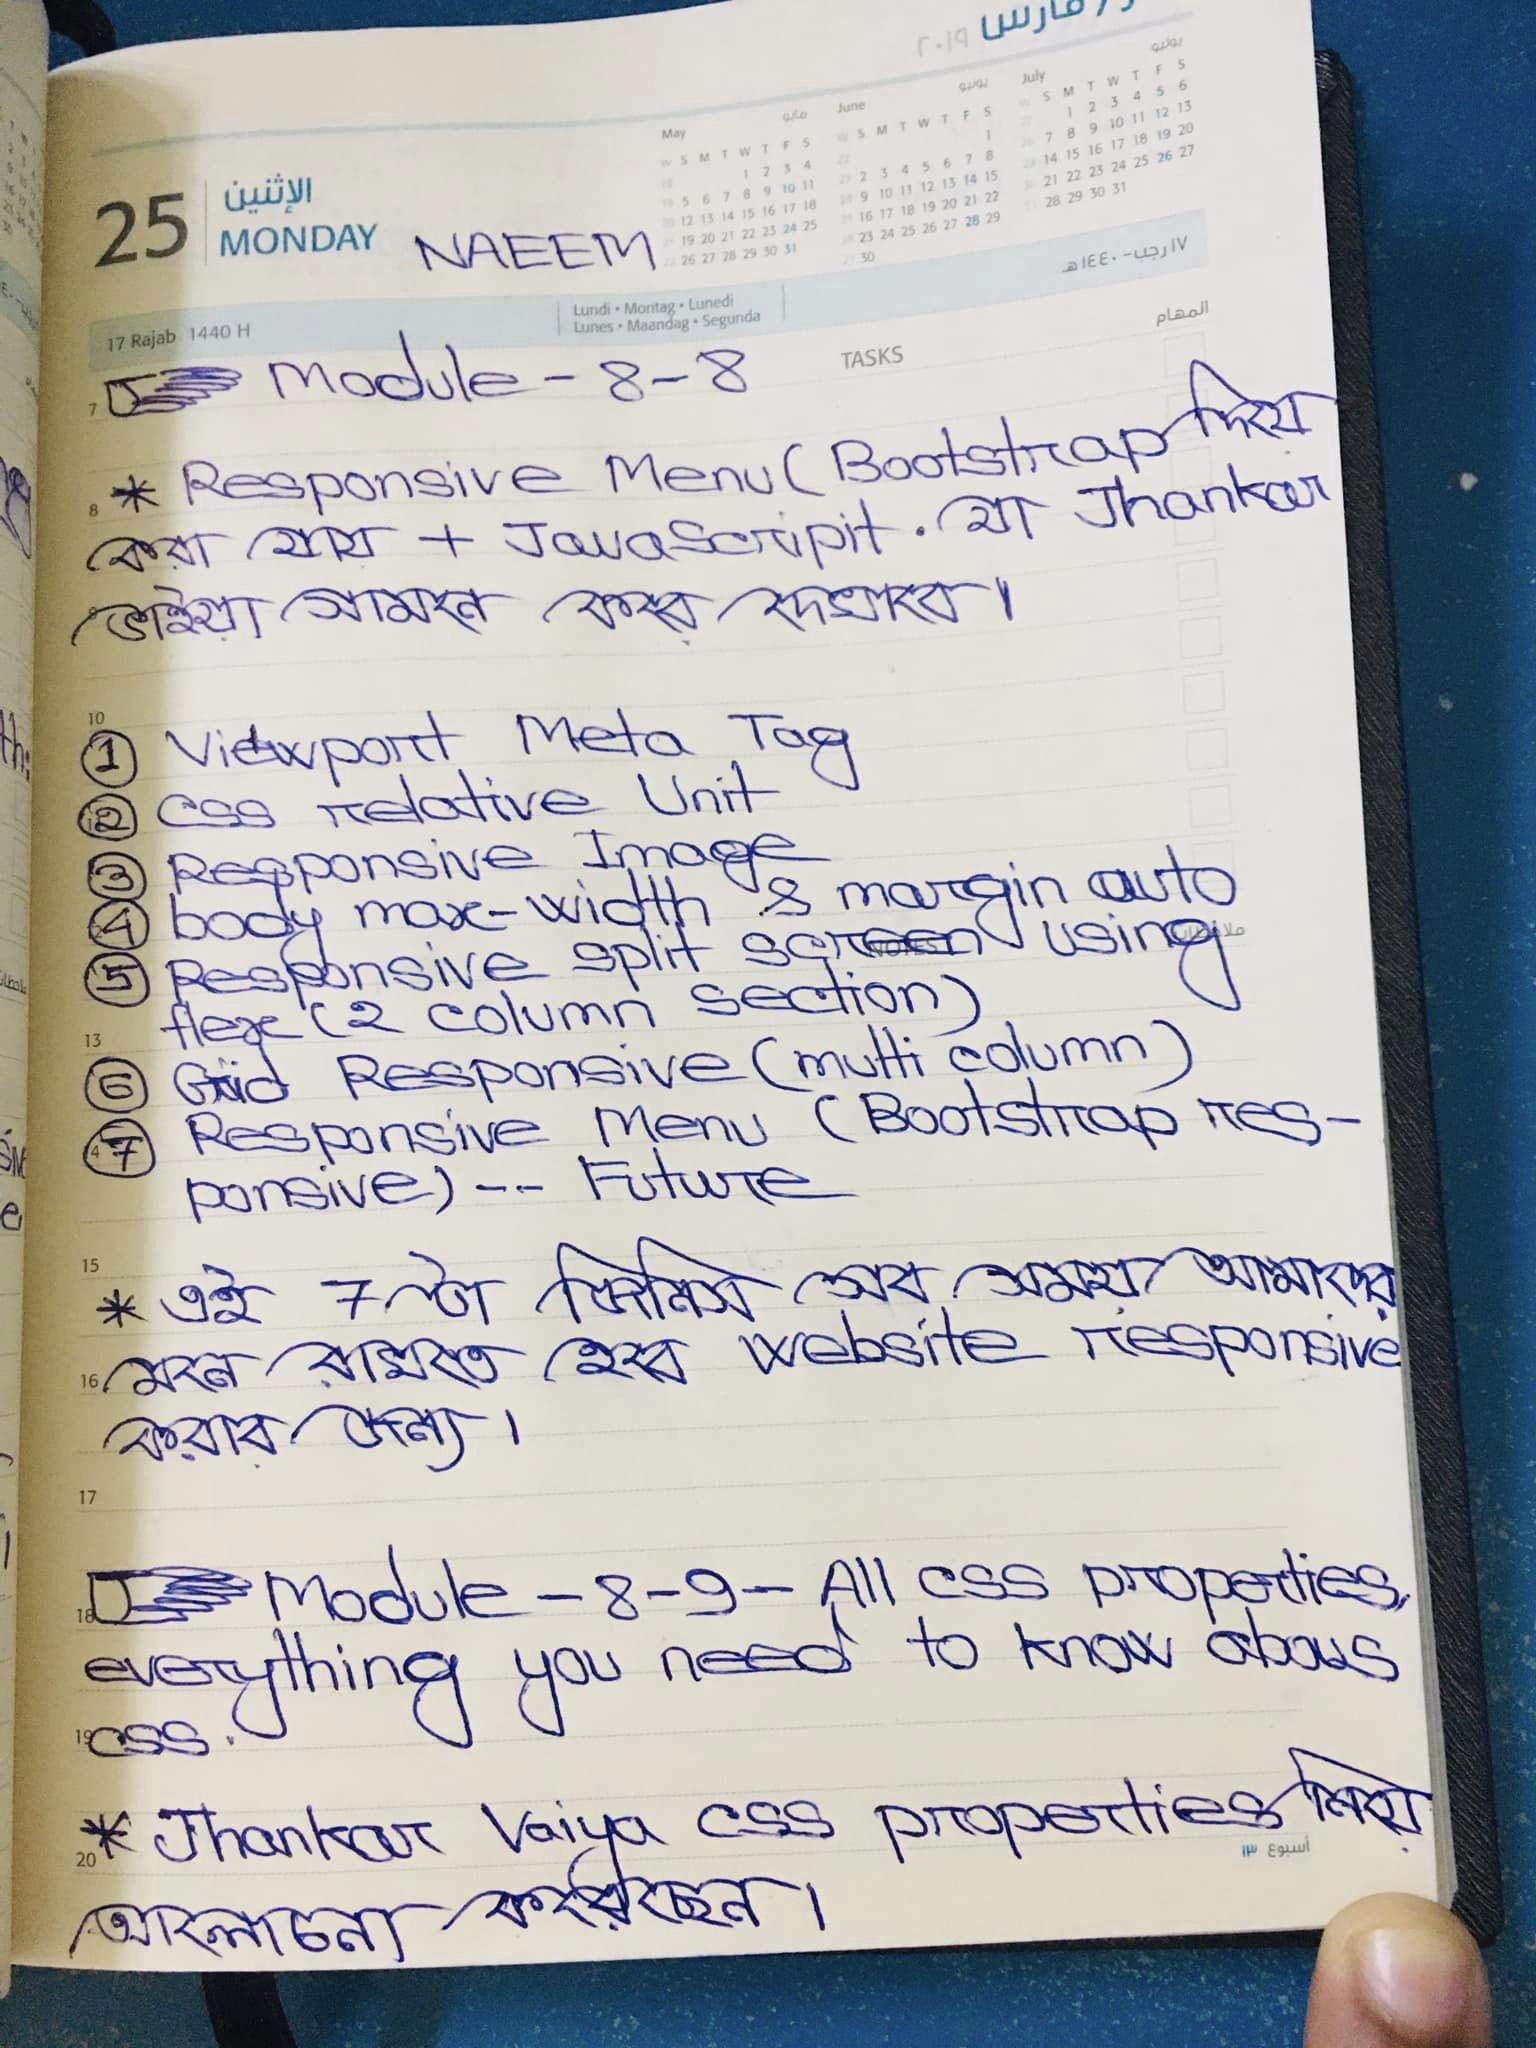 مارس ٢٠١٩
May مايو
W S M T W T F S
18 1 2 3 4
5 6 7 8 9 10 11
12 13 14 15 16 17 18
19 20 21 22 23 24 25
26 27 28 29 30 31
June يونيو
W S M T W T F S
22 1
2 3 4 5 6 7 8
9 10 11 12 13 14 15
16 17 18 19 20 21 22
23 24 25 26 27 28 29
30
July يوليو
W S M T W T F S
1 2 3 4 5 6
7 8 9 10 11 12 13
14 15 16 17 18 19 20
21 22 23 24 25 26 27
28 29 30 31
25 الإثنين
MONDAY NAEEM
17 Rajab 1440 H
Lundi • Montag • Lunedi
Lunes • Maandag • Segunda
١٧ رجب - ١٤٤٠هـ
TASKS المهام
7 Module - 8 - 8
8 * Responsive Menu ( Bootstrap দিয়ে
করা যায় + JavaScripit . যা Jhankar
ভাইয়া সামনে করে দেখাবে ।
10
1 Viewport Meta Tag
2 CSS relative Unit
3 Responsive Image
4 body max-width & margin auto
NOTES ملاحظات
5 Responsive split screen using
flex ( 2 column section)
13
6 Grid Responsive ( multi column )
7 Responsive Menu ( Bootstrap res-
ponsive) -- Future
15
* এই 7 টা জিনিস সব সময় আমাদের
16 মনে রাখতে হবে website responsive
করার জন্য ।
17
18 Module - 8 - 9 - All css properties,
everything you need to know abous
19 css.
* Jhankar Vaiya css properties নিয়ে
20 أسبوع ١٣
আলোচনা করেছেন ।